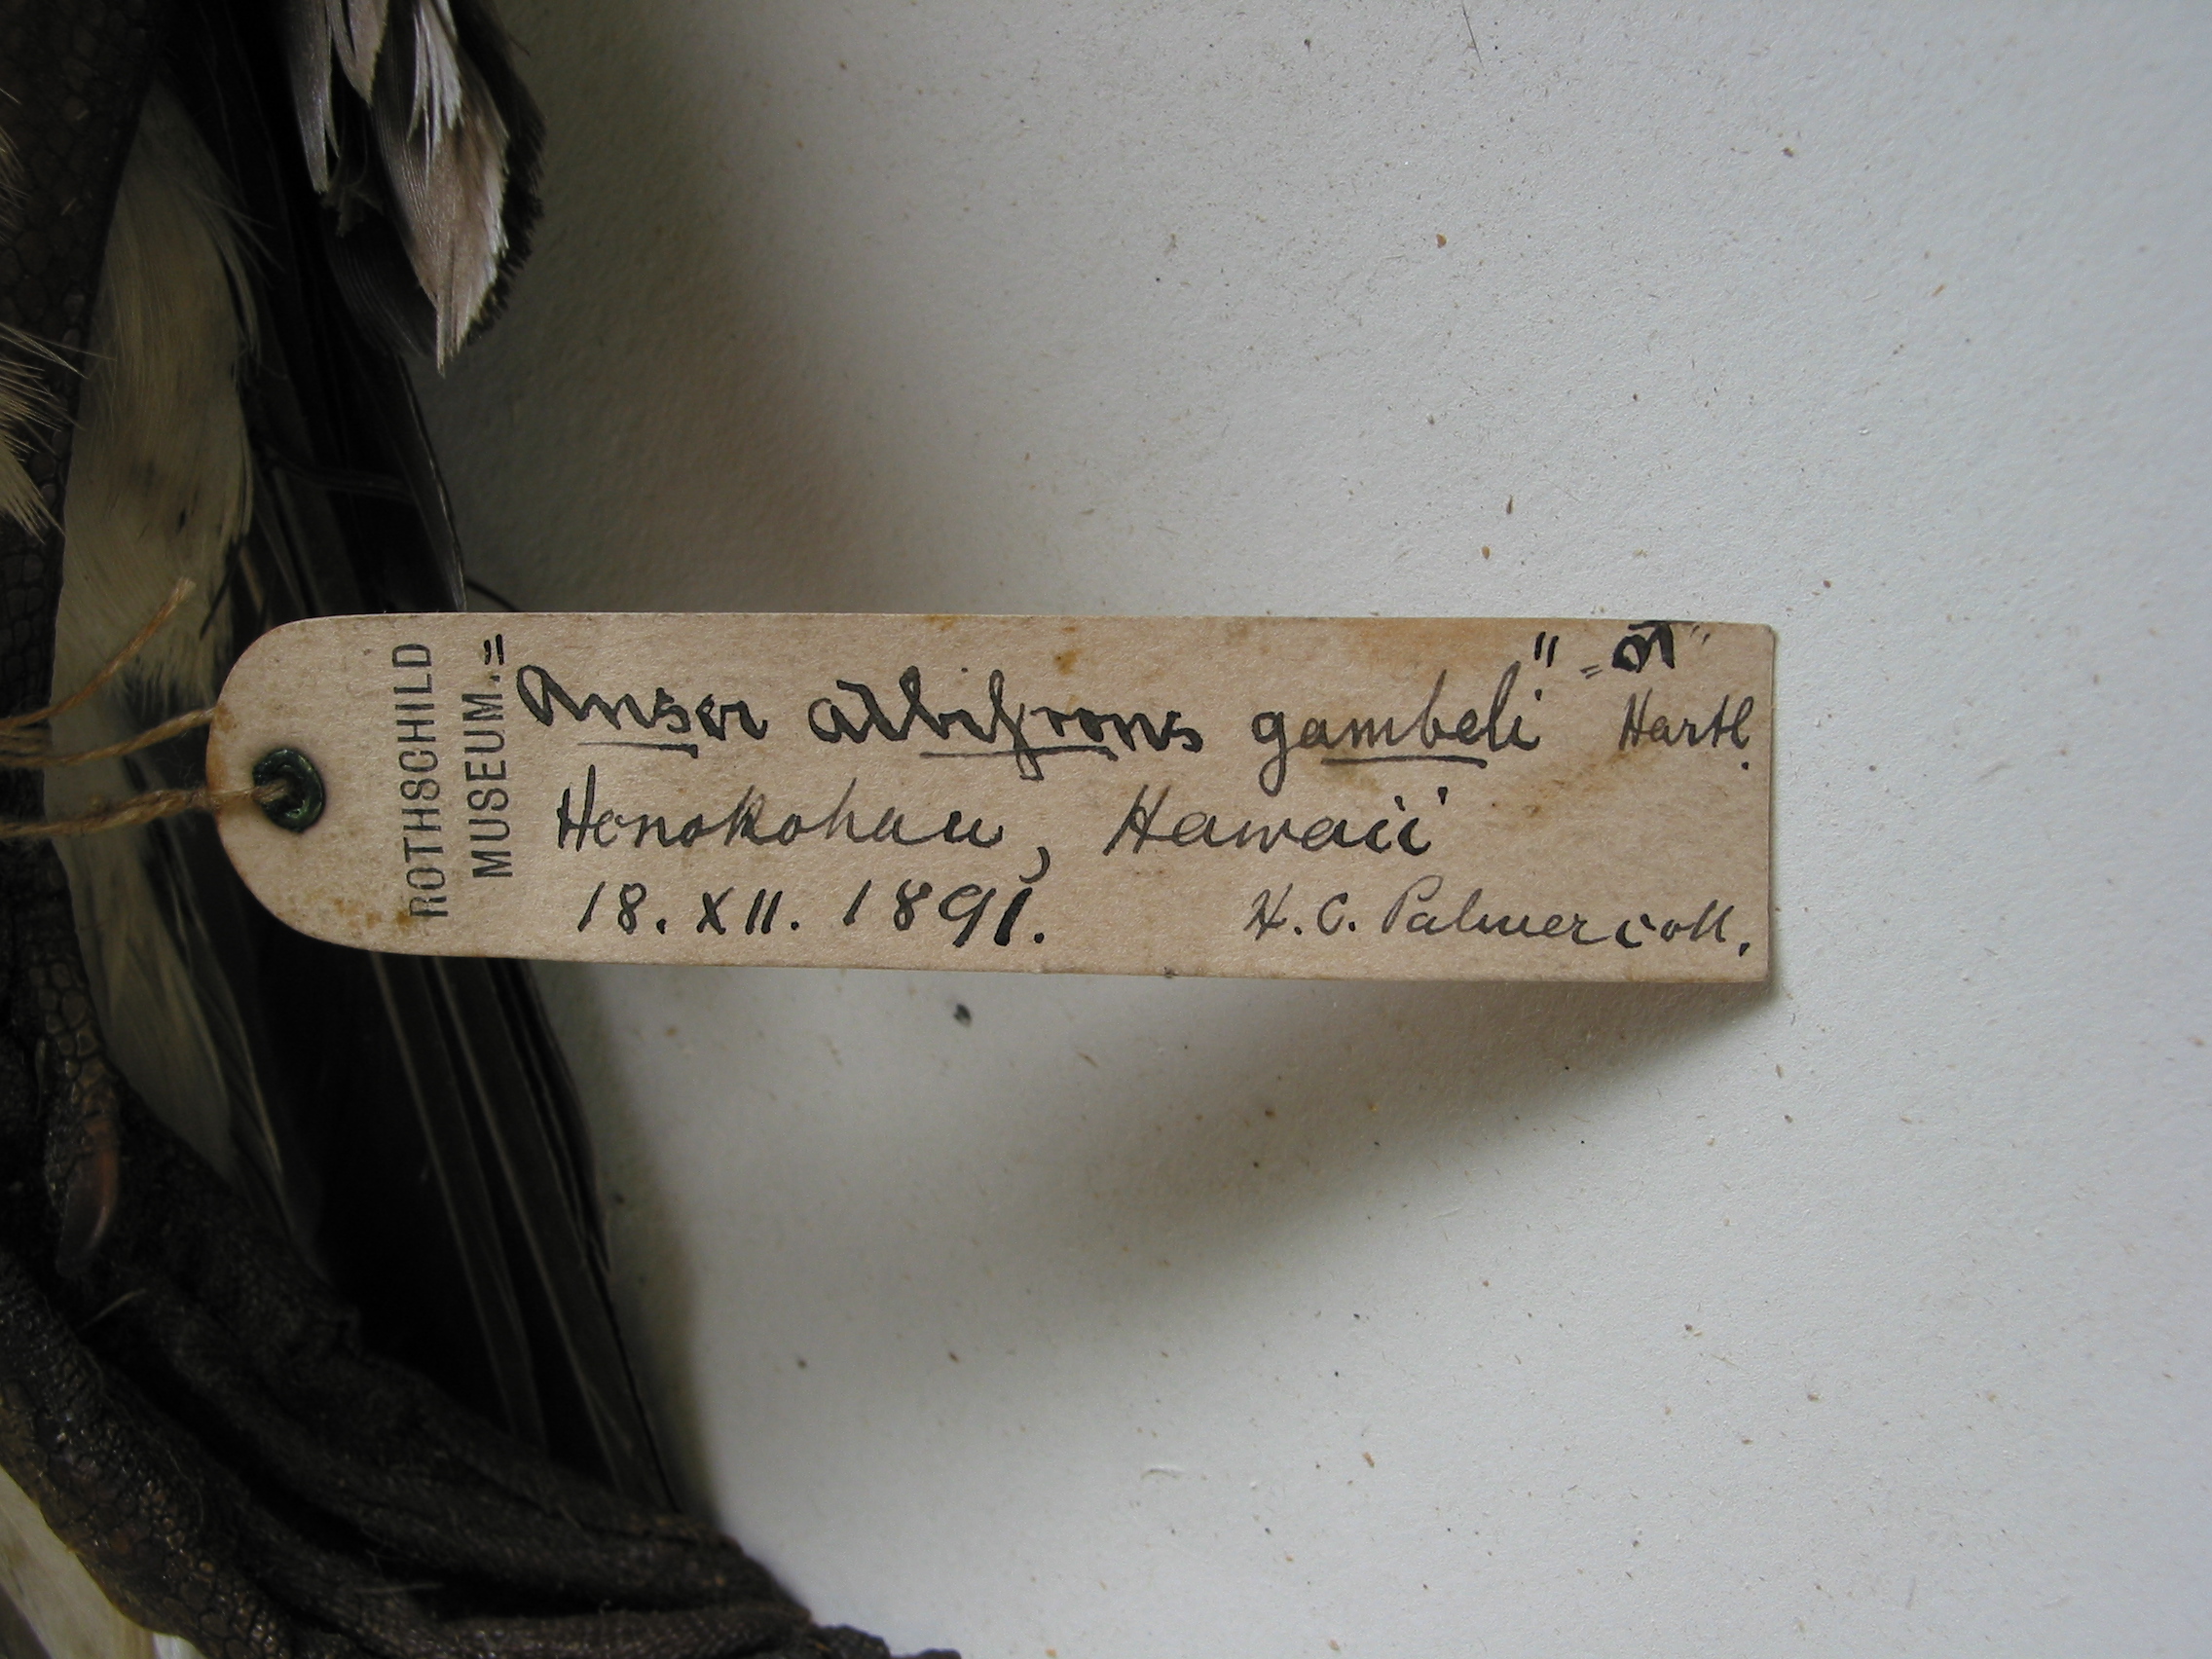 ROTHSCHILD
MUSEUM.
"Anser albifrons gambeli" "♂"
Hartl.
Honokohau, Hawaii
18. XII. 1891. H. C. Palmer coll.